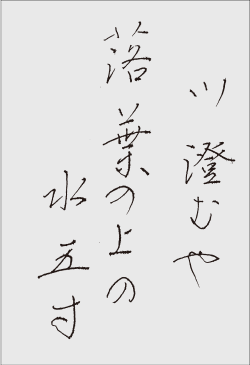 川澄むや
落葉の上の
水五寸